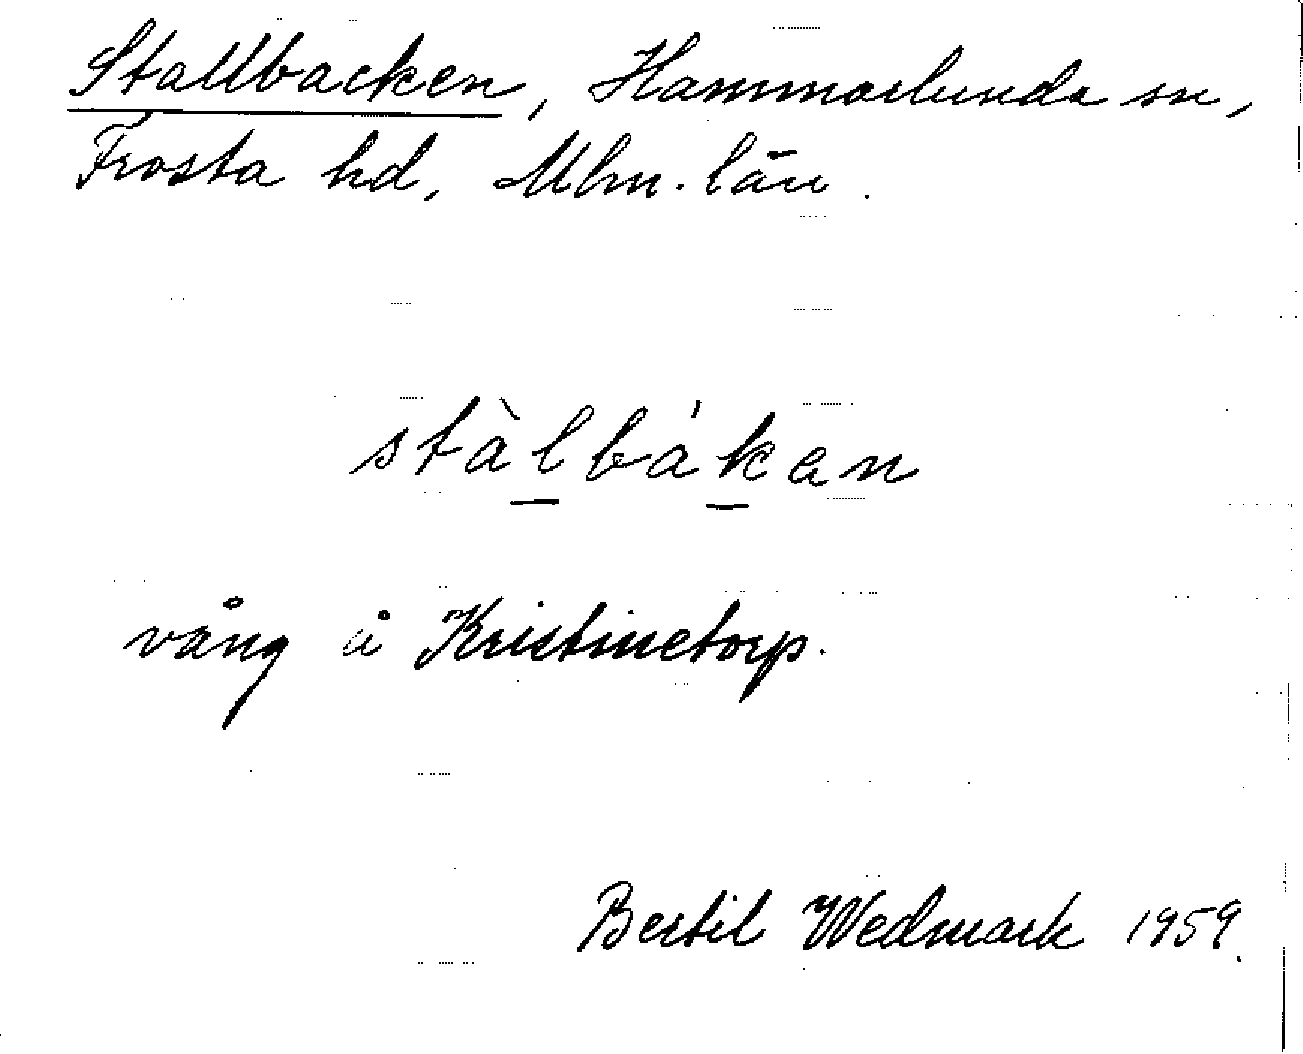 Stallbacken, Hammarlunda sn,
Frosta hd, Mlm. län.
stàlbákan
vång å Kristinetorp.
Bertil Wedmark 1959.